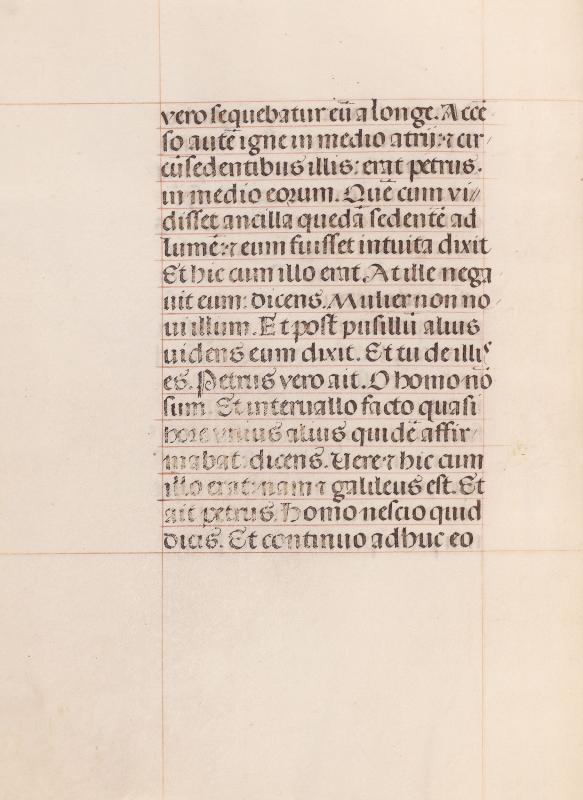 vero sequebatur eū a longe. Accē
so autē igne in medio atrij: ⁊ cir
cūsedentibus illis: erat petrus.
in medio eorum. Quē cum vi//
disset ancilla quedā sedentē ad
lumē: ⁊ eum fuisset intuita dixit
Et hic cum illo erat. At ille nega
uit eum: dicens. Mulier non no
ui illum. Et post pusillū alius
uidens eum dixit. Et tu de illis
es. Petrus vero ait. O homo nō
sum. Et interuallo facto quasi
hore vnius alius quidē affir
mabat: dicens. Uere ⁊ hic cum
illo erat: nam ⁊ galileus est. Et
ait petrus. Homo nescio quid
dicis. Et continuo adhuc eo